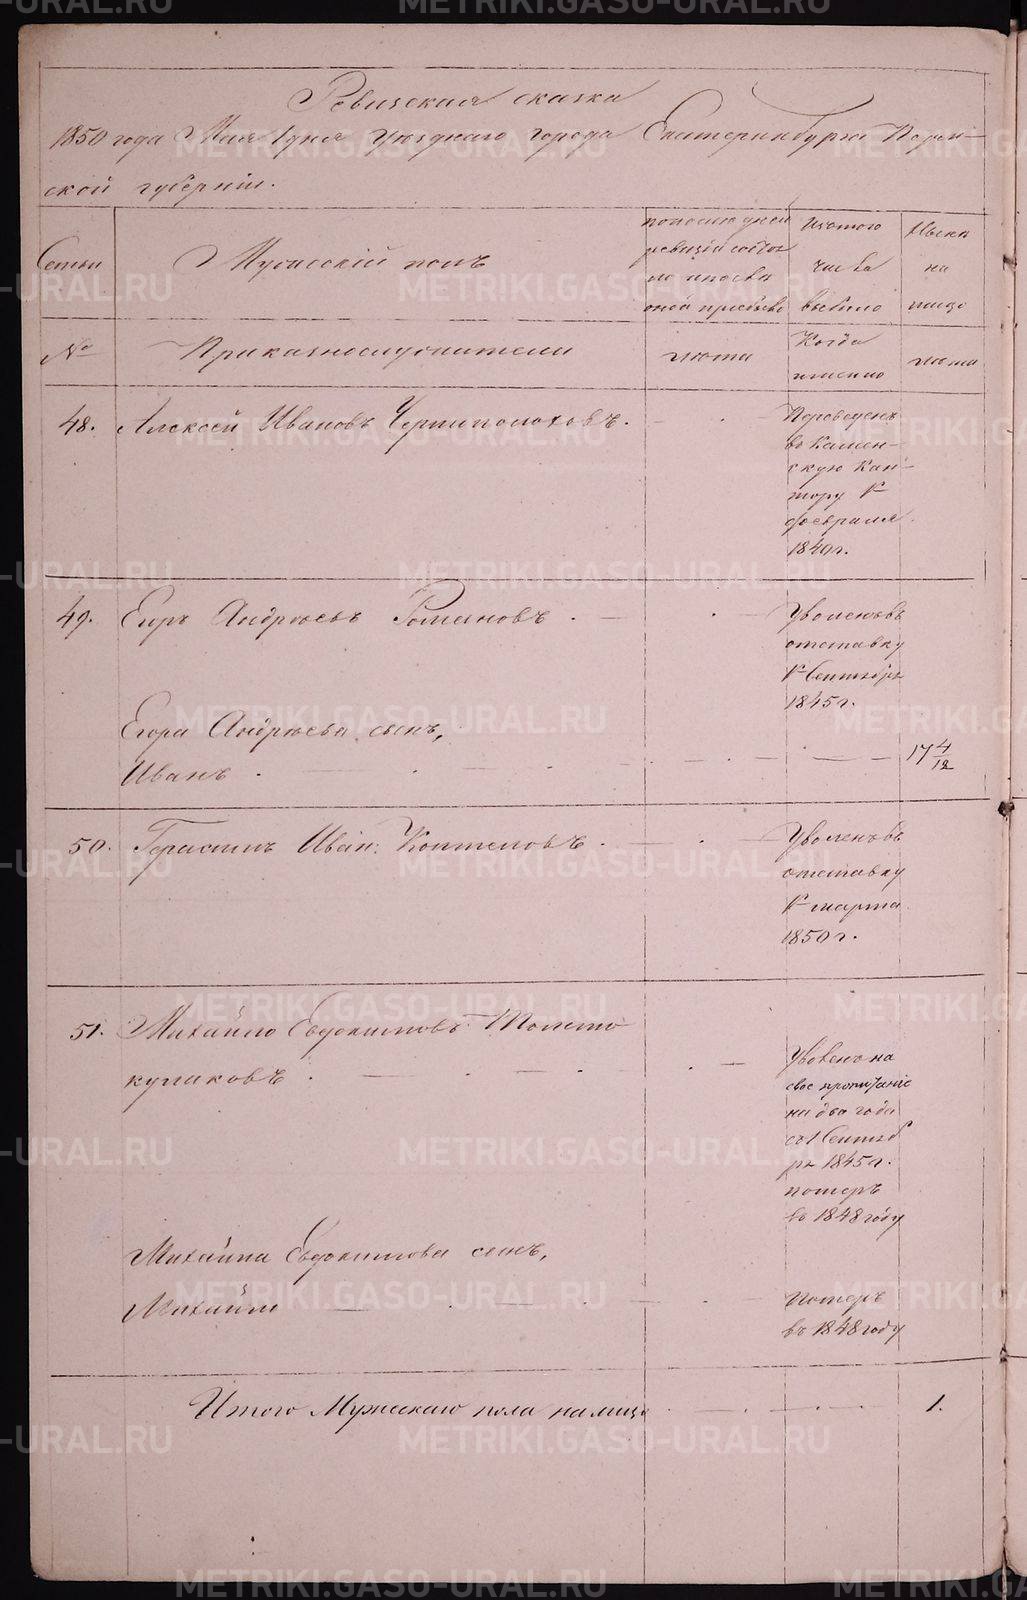 Ревизская сказка
1850 года Мая 1 дня Уезднаго города Екатеринбурга Перм-
ской губернiи.
Семьи
Мужескiй полъ
По послѣдней
ревизiи состоя
ло и послѣ
оной прибыло
Изъ того
числа
выбыло
Нынѣ
на
лицо
№
Приказнослужители
лѣта
Когда
именно
лѣта
48. Алексей Ивановъ Чертополоховъ.
Переведенъ
въ Камен-
скую Кан-
тору
февраля
1840 г.
49. Егоръ Андрѣевъ Романовъ
Уволенъ въ
отставку
Сентября
1845 г.
Егора Андрѣева сынъ,
Иванъ
17 4/12
50. Герасимъ Иван. Коптеловъ
Уволенъ въ
отставку
марта
1850 г.
51. Михайло Евдокимовъ Толсто
куликовъ
Уволенъ на
свое пропитанiе
на два года
съ 1 Сентяб
ря 1845 г.
померъ
въ 1848 году
Михайла Евдокимова сынъ,
Михайло
Померъ
въ 1848 году
Итого Мужескаго пола на лицо
1.
METRIKI.GASO-URAL.RU